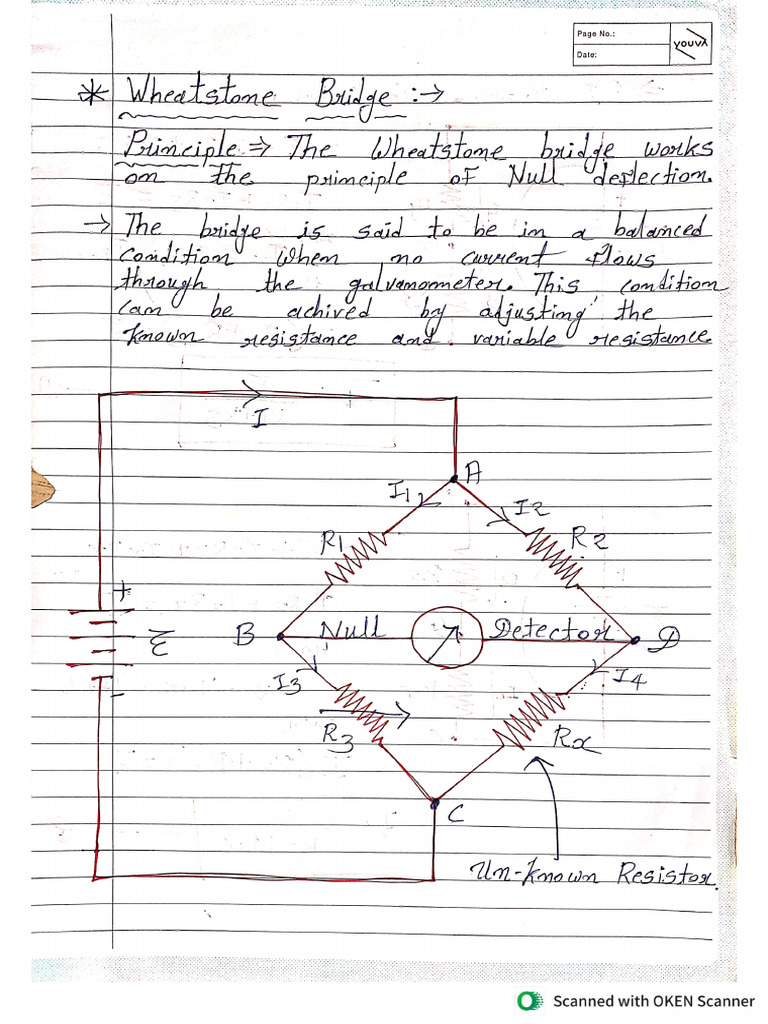 Page No.:
Date:
YOUVA
* Wheatstone Bridge :→
Principle ⇒ The Wheatstone bridge works
on the principle of Null deflection.
→ The bridge is said to be in a balanced
condition when no current flows
through the galvanometer. This condition
can be achived by adjusting the
known resistance and variable resistance.
I
A
I1
I2
R1
R2
+
E
B
Null
Detector
D
I3
I4
-
R3
Rx
C
Un-known Resistor.
Scanned with OKEN Scanner